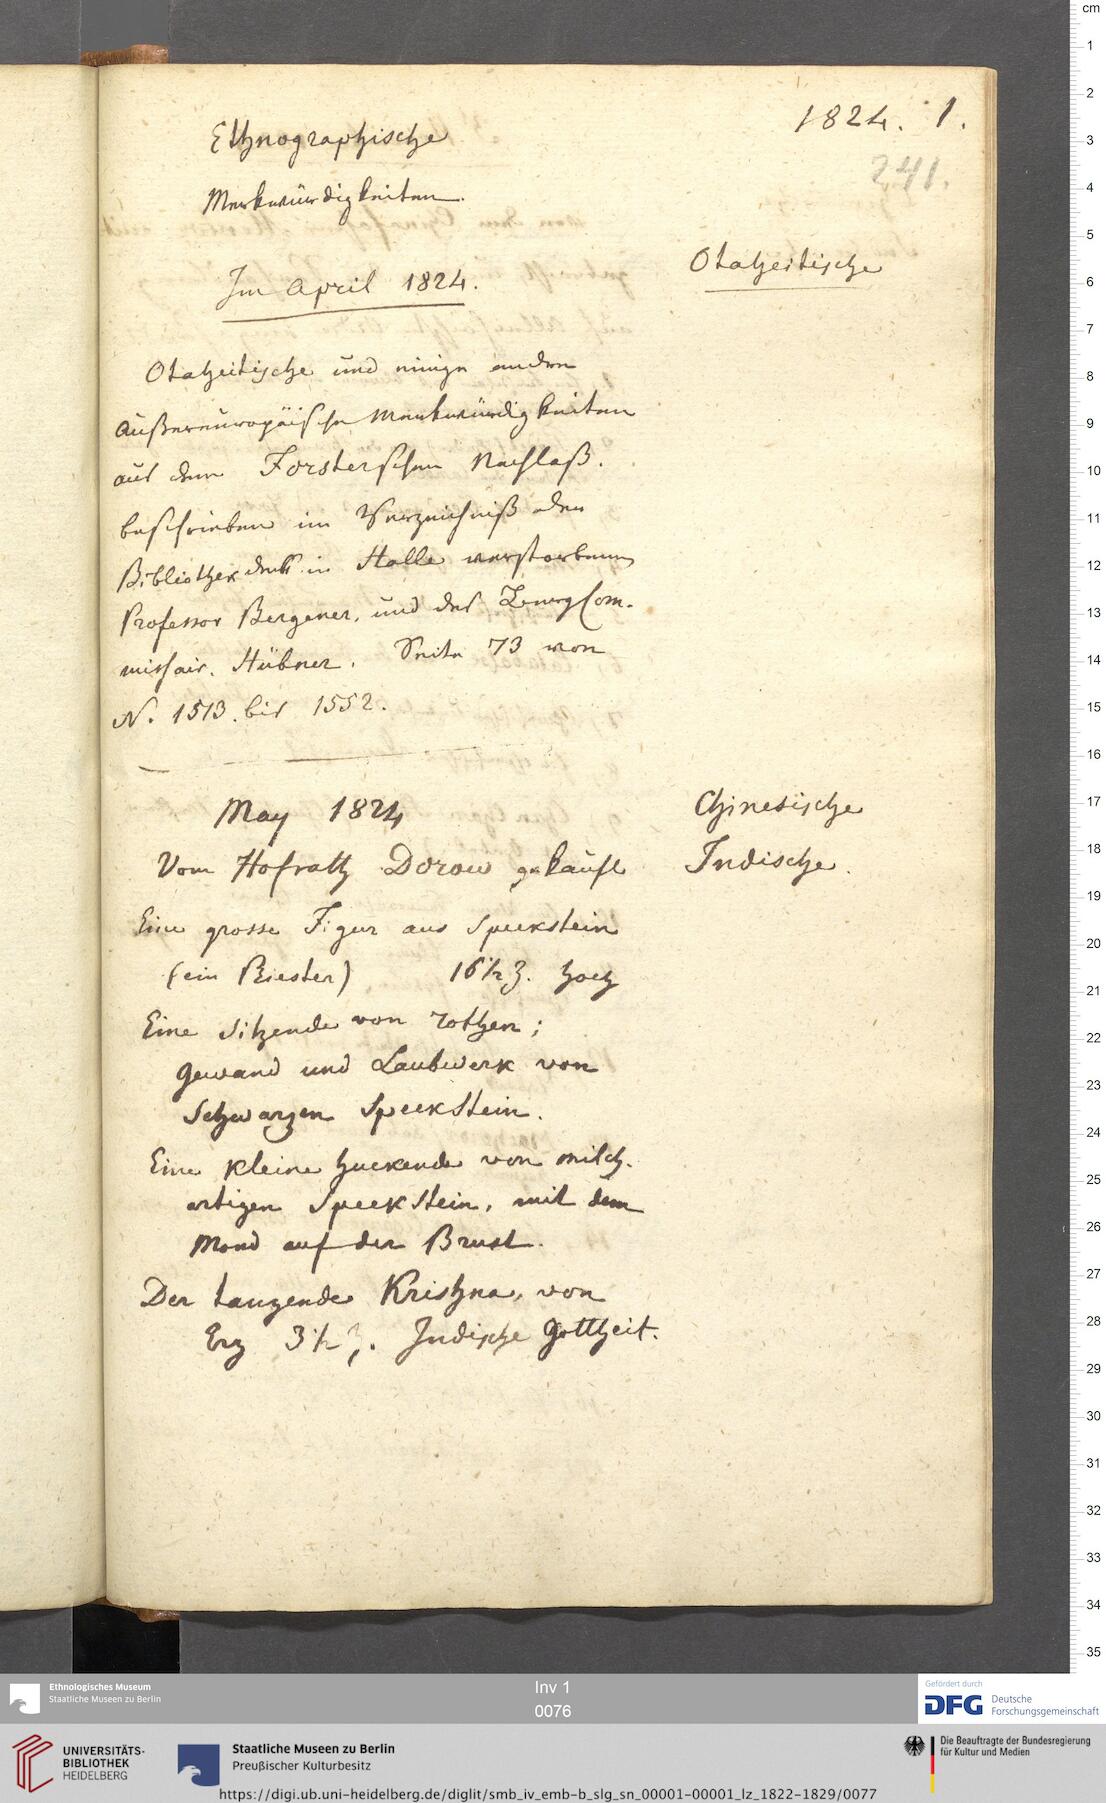 1824. 1.
241.
Ethnographische
Merkwürdigkeiten.
Im April 1824.
Otaheitische
Otaheitische und einige andre
außereuropäische Merkwürdigkeiten
aus dem Forsterschen Nachlaß.
beschrieben im Verzeichniß der
Bibliothek des in Halle verstorbenen
Professor Bergener, und des
missair. Hübner. Seite 73 von
N. 1513. bis 1552.
May 1824
Chinesische
Vom Hofrath Dorow gekauft
Indische.
Eine grosse Figur aus Speckstein
(ein Priester) 16 1/2 Z. hoch
Eine sitzende von rothen;
Gewand und Laubwerk von
Schwarzen Speckstein.
Eine kleine huckende von milch-
artigen Speckstein, mit dem
Mond auf der Brust.
Der tanzende Krishna, von
Erz 3 1/2 Z. Indische Gottheit.
cm
1
2
3
4
5
6
7
8
9
10
11
12
13
14
15
16
17
18
19
20
21
22
23
24
25
26
27
28
29
30
31
32
33
34
35
Ethnologisches Museum
Staatliche Museen zu Berlin
Inv 1
0076
Gefördert durch
DFG Deutsche
Forschungsgemeinschaft
UNIVERSITÄTS-
BIBLIOTHEK
HEIDELBERG
Staatliche Museen zu Berlin
Preußischer Kulturbesitz
Die Beauftragte der Bundesregierung
für Kultur und Medien
https://digi.ub.uni-heidelberg.de/diglit/smb_iv_emb-b_slg_sn_00001-00001_lz_1822-1829/0077